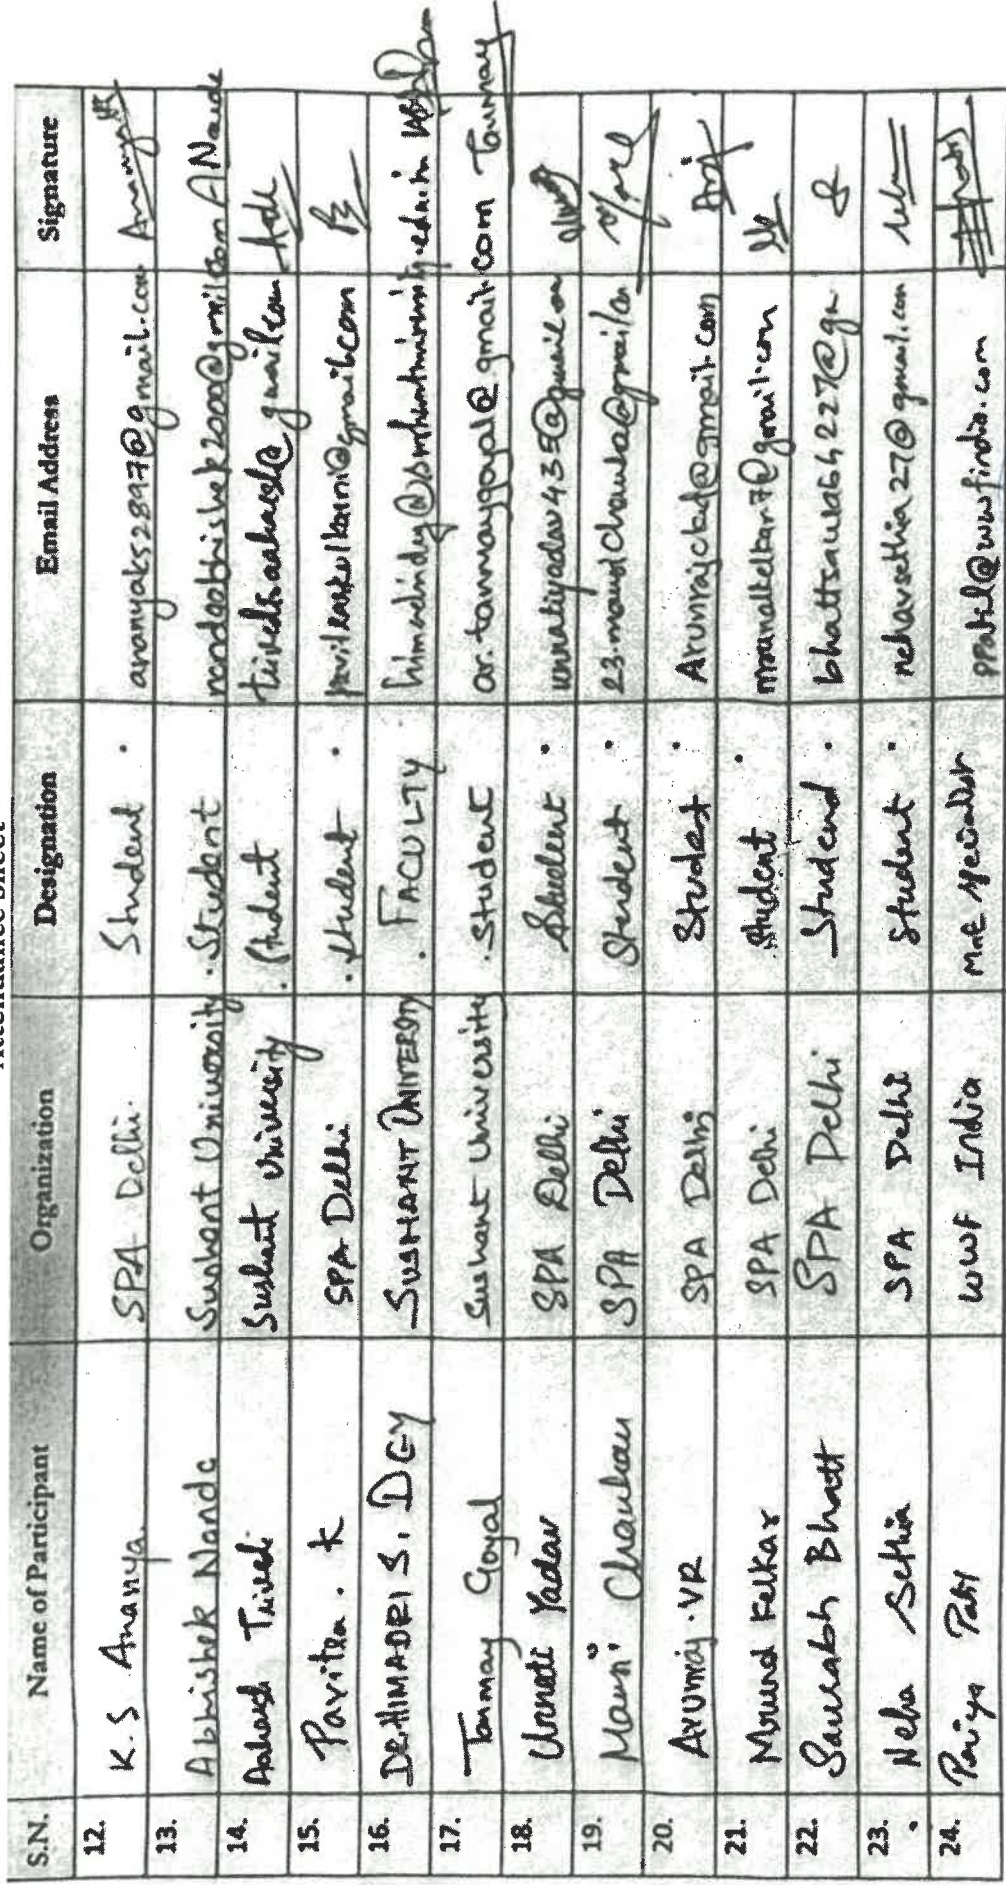 Attendance Sheet
S.N. Name of Participant Organization Designation Email Address Signature
12. K.S Ananya SPA Delhi. Student . ananyaks2897@gmail.com
13. Abhishek Nanda Sushant University . Student nandaabhishek2000@gmail.com ANanda
14. Aakash Trivedi Sushant University . Student trivediaakash@gmail.com
15. Pavitra. K SPA Delhi . Student . pavitrakulkarni@gmail.com
16. DR. HIMADRI S. DEY SUSHANT UNIVERSITY . FACULTY
17. Tanmay Goyal Sushant University . Student ar.tanmaygoyal@gmail.com Tanmay
18. Unnati Yadav SPA Delhi Student . unnatiyadav435@gmail.com
19. Mansi Chauhan SPA Delhi Student .
20. Arunraj.VR SPA Delhi Student . Arunrajckd@gmail.com
21. Mrunal Kelkar SPA Delhi Student . mrunalkelkar7@gmail.com
22. Saurabh Bhatt SPA Delhi Student . bhattsaurabh2227@gm
23. Neha Sethia SPA Delhi Student . nehavsethia27@gmail.com
24. Priya Patil WWF India MnE specialist ppatil@wwfindia.com